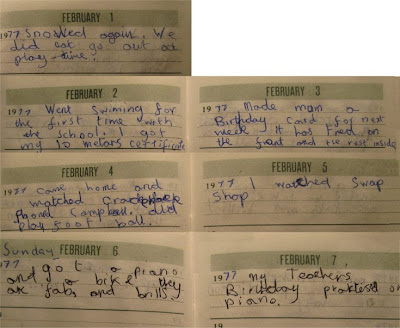 FEBRUARY 1
1977 Snowed again. We
did not go out at
play-time!
FEBRUARY 2
1977 Went Swiming for
the first time with
the school. I got
my 10 meters certificate
FEBRUARY 3
1977 Made mum a
Birthday Card for next
week it has Fred on
the front and the rest inside
FEBRUARY 4
1977 came home and
watched
phoned Campball. did
play foot ball.
FEBRUARY 5
1977 I watched Swap
Shop
Sunday FEBRUARY 6
1977
and got a piano
and a bike they
are fabs and brills.
FEBRUARY 7
1977 my Teachers
Birthday praktesed on
piano.